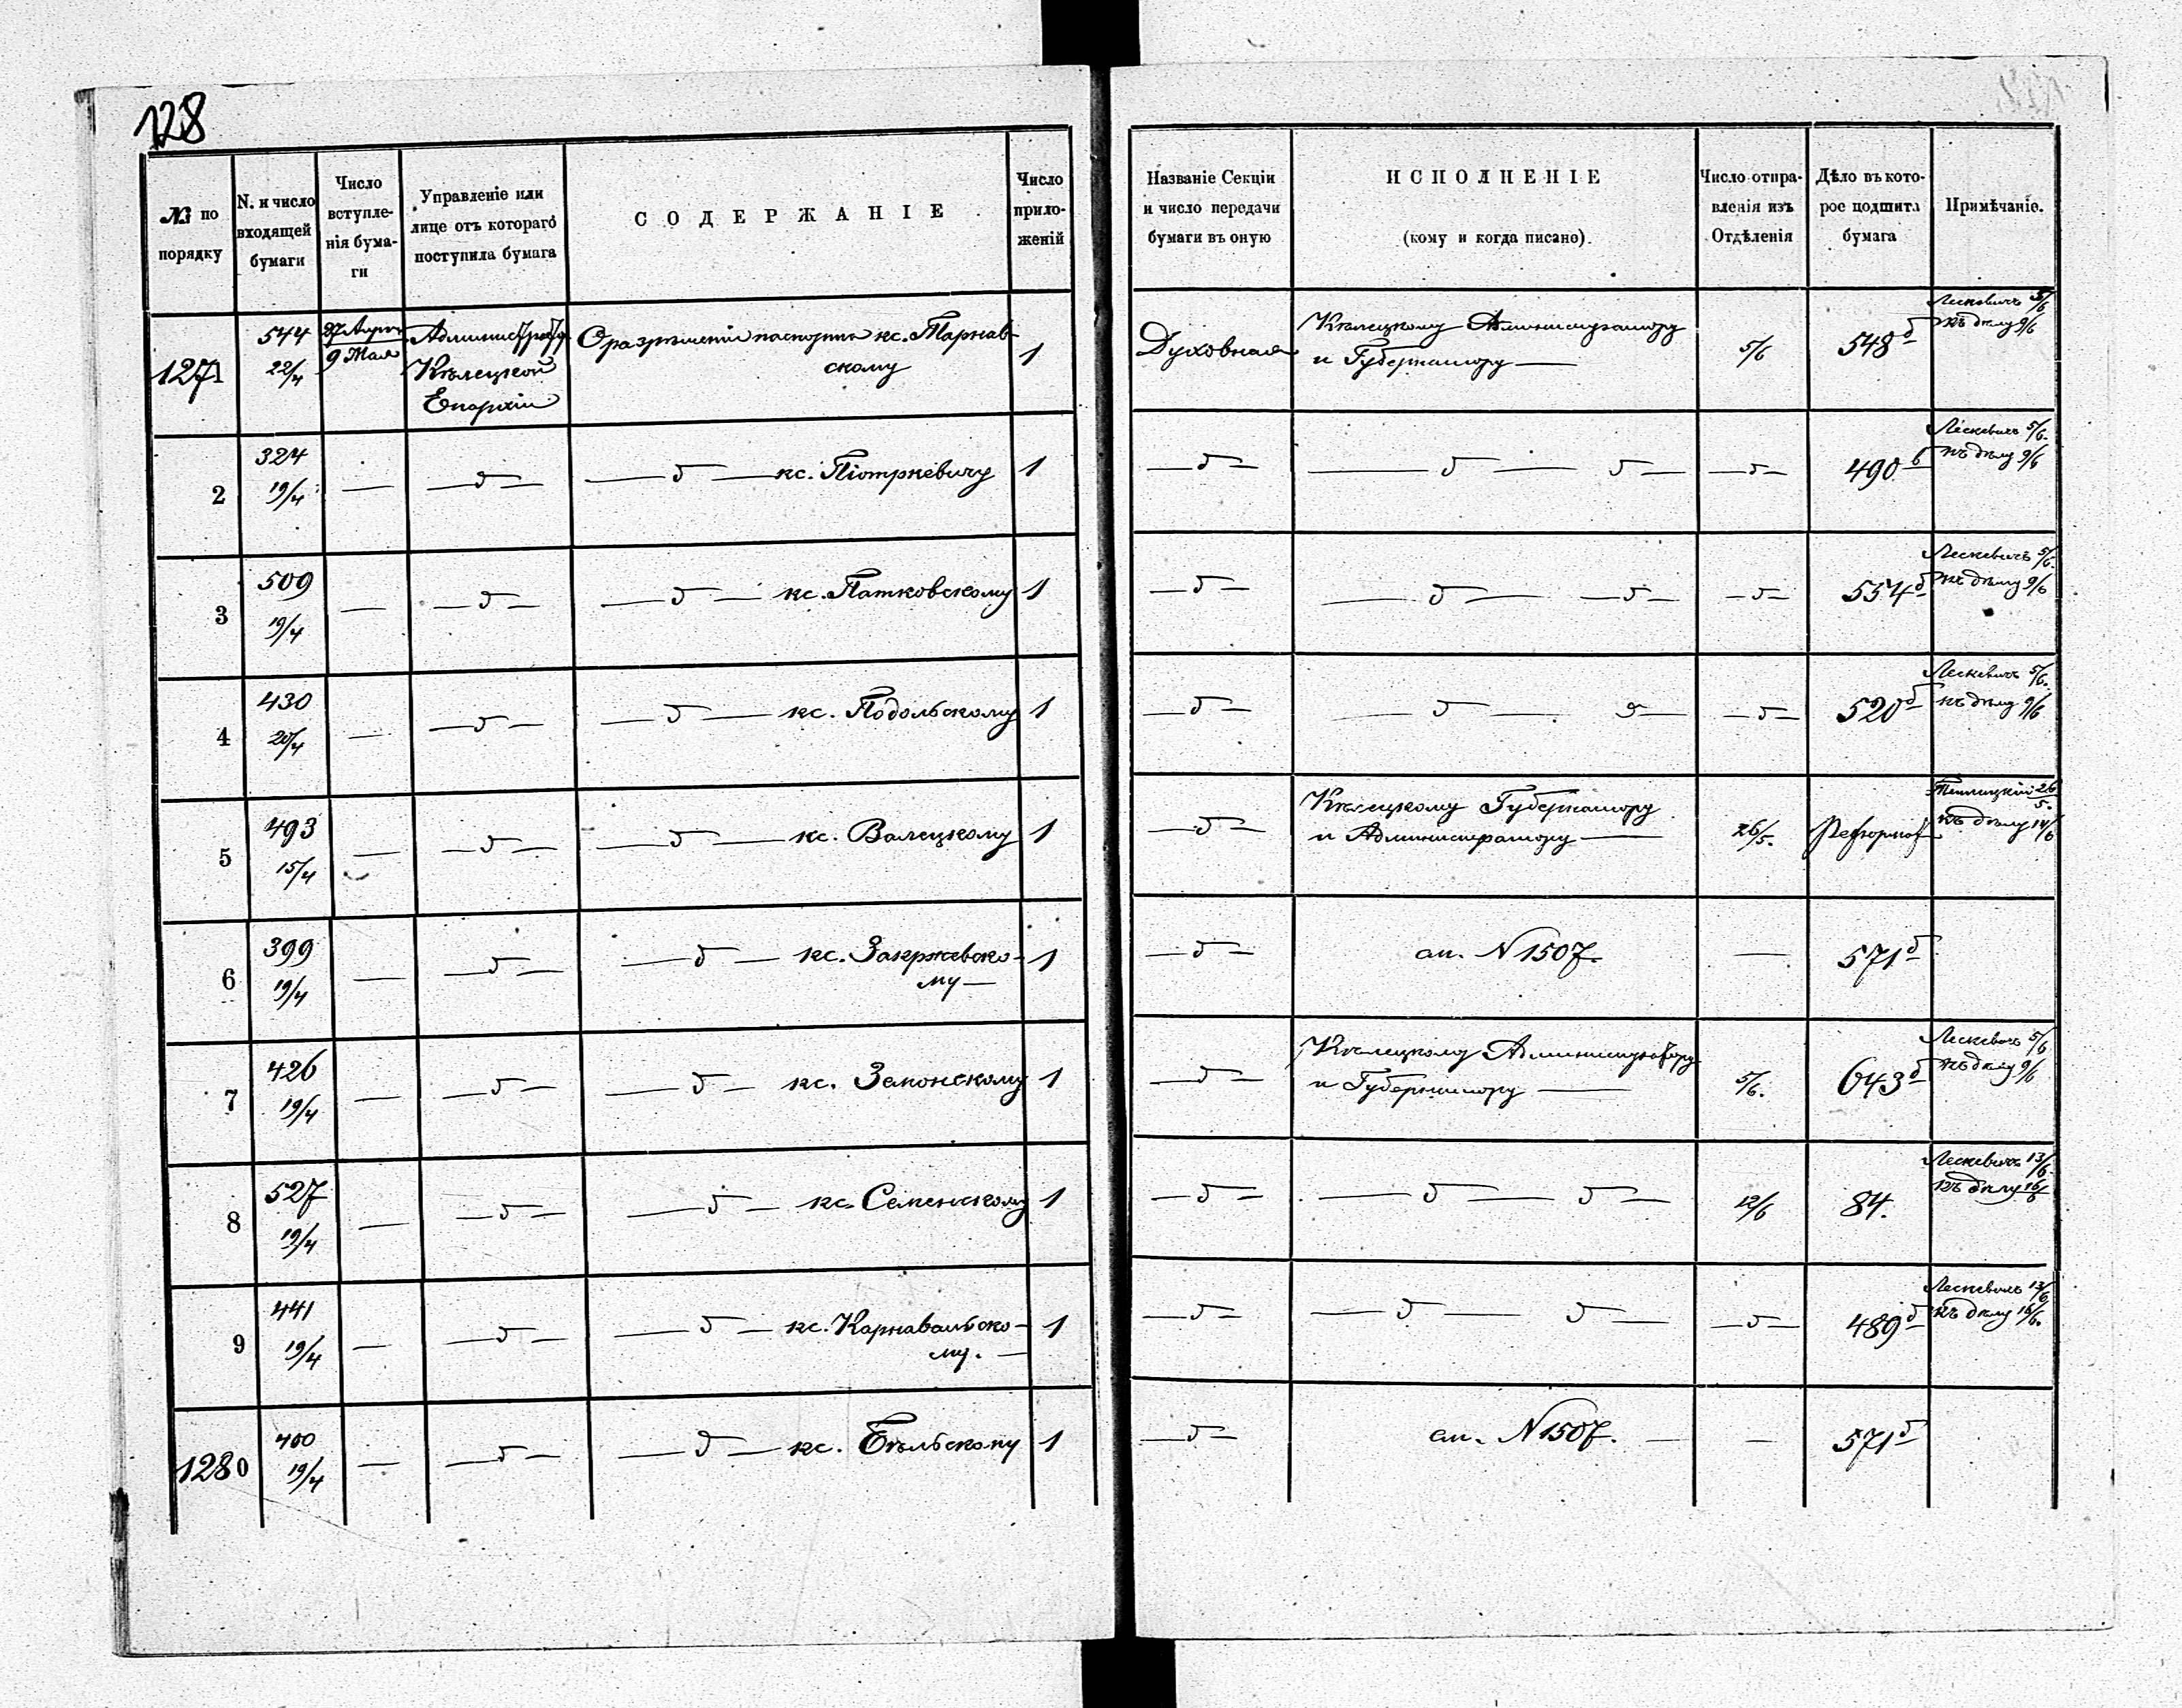 128
№ по порядку
N. и число входящей бумаги
Число вступле-нія бума-ги
Управленіе или лице отъ котораго поступила бумага
СОДЕРЖАНІЕ
Число прило-женій
Названіе Секціи и число передачи бумаги въ оную
ИСПОЛНЕНІЕ
(кому и когда писано).
Число отпра-вленія изъ Отдѣленія
Дѣло въ кото-рое подшита бумага
Примѣчаніе.
1271 544 22/4 27 Апр. 9 Мая Администратора Кѣлецкой Епархіи О разрѣшеніи паспорта кс. Тарнав-скому 1 Духовная Кѣлецкому Администратору и Губернатору — 5/6 548 д Лескевичъ 5/6 къ дѣлу 9/6
2 324 19/4 — — д — — д — кс. Піотркевичу 1 — д — — д — д — — д — 490 б Лескевичъ 5/6. къ дѣлу 9/6
3 509 19/4 — — д — — д — кс. Патковскому 1 — д — — д — — д — — д — 554 д Лескевичъ 5/6. къ дѣлу 9/6
4 430 20/4 — — д — — д — кс. Подольскому 1 — д — — д — д — — д — 520 д Лескевичъ 5/6. къ дѣлу 9/6
5 493 15/4 — — д — — д — кс. Валецкому 1 — д — Кѣлецкому Губернатору и Администратору — 26/5. 26/5. къ дѣлу 14/6
6 399 19/4 — — д — — д — кс. Закржевско-му — 1 — д — см. N 1507. — 571 д
7 426 19/4 — — д — — д — кс. Законскому 1 — д — Кѣлецкому Администратору и Губернатору — 5/6. 643 д Лескевичъ 5/6 къ дѣлу 9/6
8 527 19/4 — — д — — д — кс. Семенскому 1 — д — — д — д — 12/6 84. Лескевичъ 13/6. къ дѣлу 16/6
9 441 19/4 — — д — — д — кс. Карнавальско-му. — 1 — д — — д — д — — д — 489 д Лескевичъ 13/6 къ дѣлу 16/6.
1280 400 19/4 — — д — — д — кс. Бѣльскому 1 — д — см. N 1507. — — 571 д